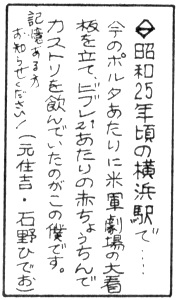 ⇔昭和25年頃の横浜駅で……
今のポルタあたりに米軍劇場の大看
板を立て、ビブレ21あたりの赤ちょうちんで
カストリを飲んでいたのがこの僕です。
記憶ある方
お知らせください! (元住吉・石野ひでお)